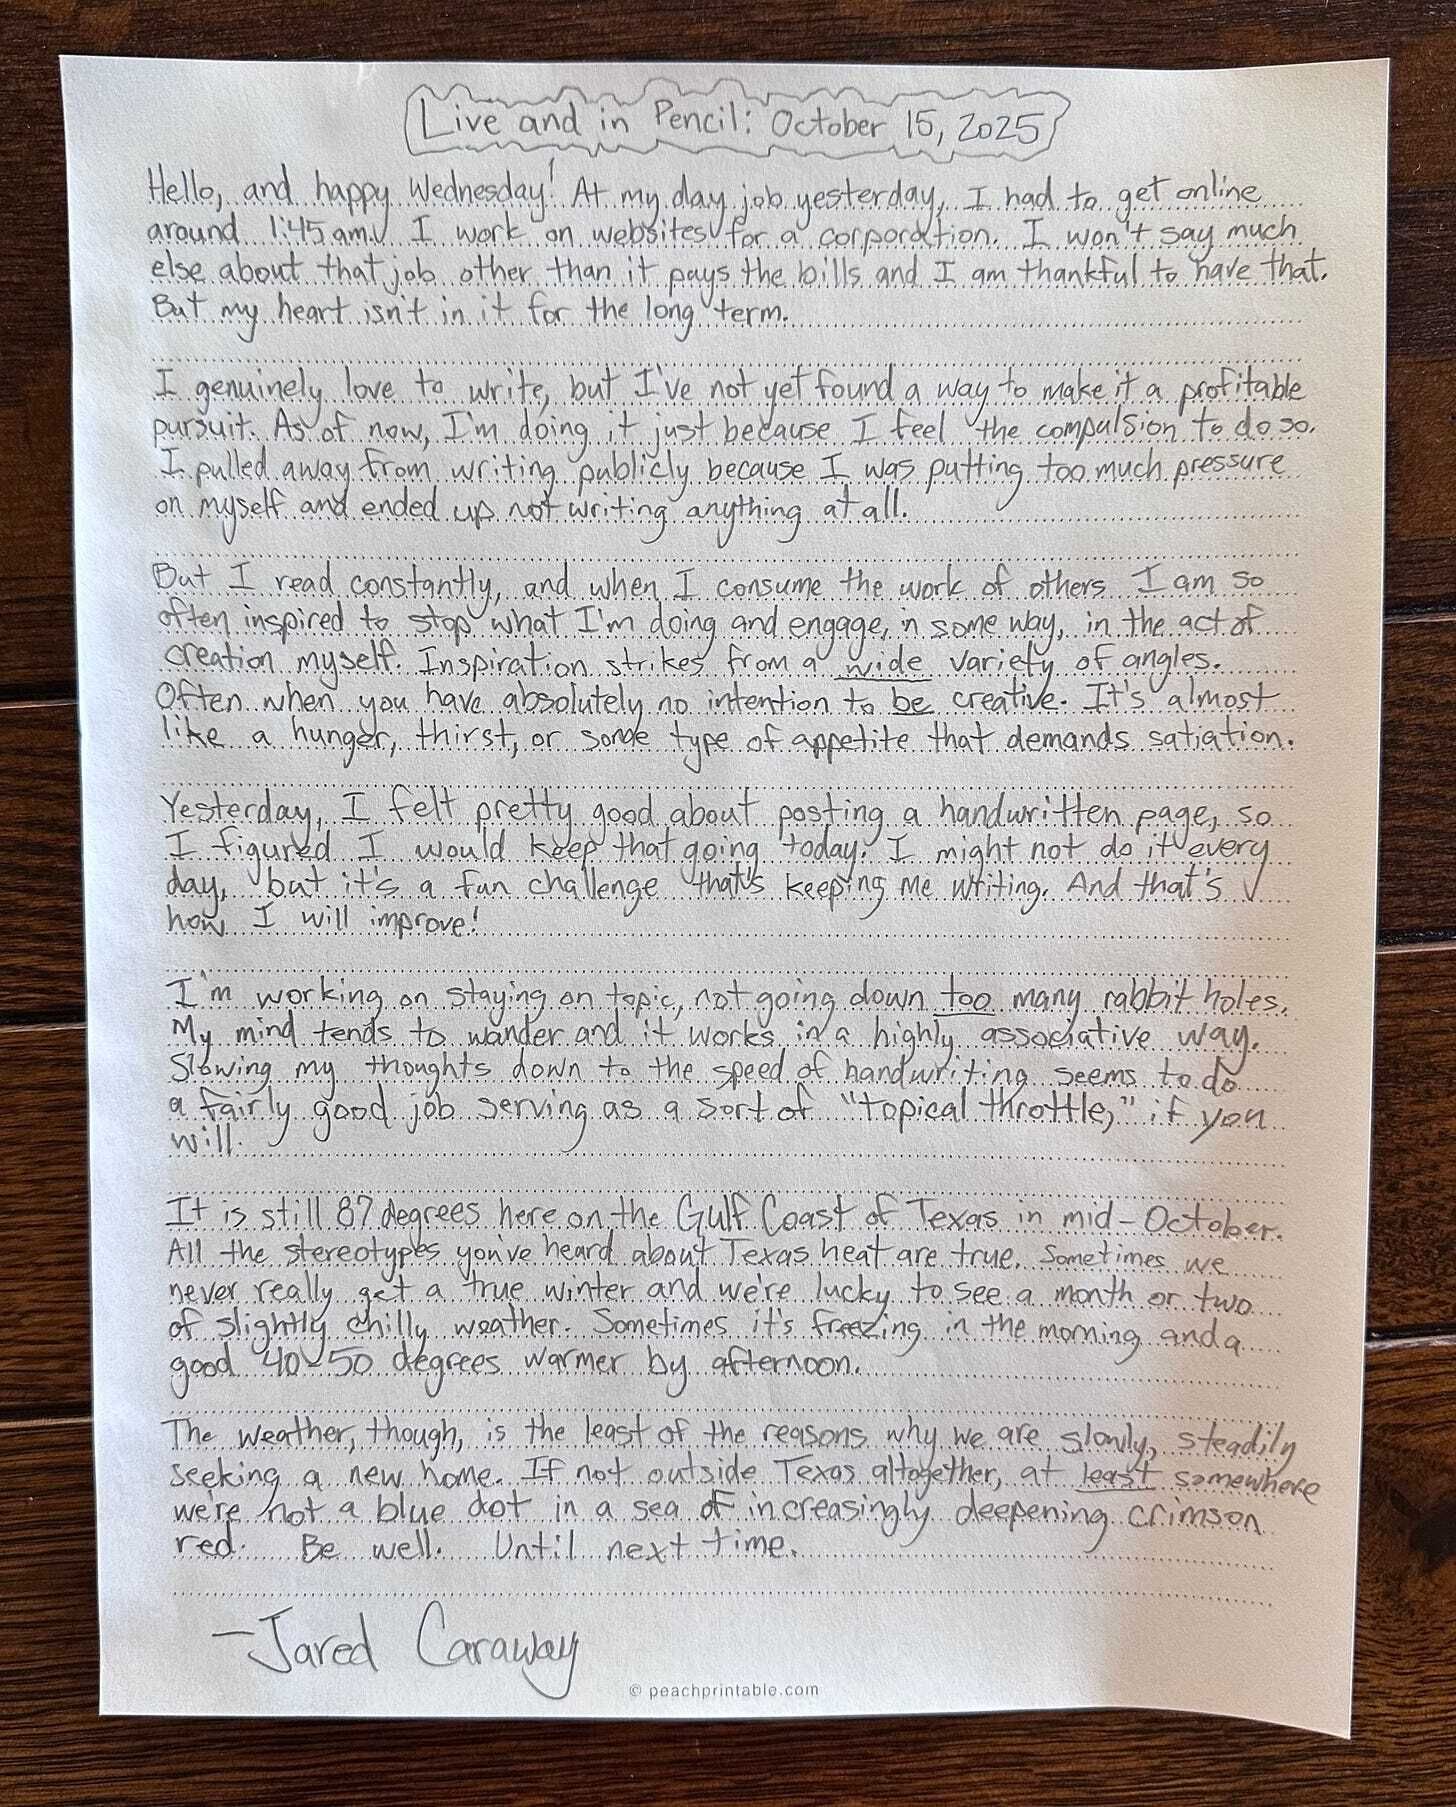 Live and in Pencil: October 15, 2025
Hello, and happy Wednesday! At my day job yesterday, I had to get online
around 1:45 am. I work on websites for a corporation. I won't say much
else about that job other than it pays the bills and I am thankful to have that.
But my heart isn't in it for the long term.
I genuinely love to write, but I've not yet found a way to make it a profitable
pursuit. As of now, I'm doing it just because I feel the compulsion to do so.
I pulled away from writing publicly because I was putting too much pressure
on myself and ended up not writing anything at all.
But I read constantly, and when I consume the work of others I am so
often inspired to stop what I'm doing and engage, in some way, in the act of
creation myself. Inspiration strikes from a wide variety of angles.
Often when you have absolutely no intention to be creative. It's almost
like a hunger, thirst, or some type of appetite that demands satiation.
Yesterday, I felt pretty good about posting a handwritten page, so
I figured I would keep that going today. I might not do it every
day, but it's a fun challenge that's keeping me writing. And that's
how I will improve!
I'm working on staying on topic, not going down too many rabbit holes.
My mind tends to wander and it works in a highly associative way.
Slowing my thoughts down to the speed of handwriting seems to do
a fairly good job serving as a sort of "topical throttle," if you
will.
It is still 87 degrees here on the Gulf Coast of Texas in mid-October.
All the stereotypes you've heard about Texas heat are true. Sometimes we
never really get a true winter and we're lucky to see a month or two
of slightly chilly weather. Sometimes it's freezing in the morning and a
good 40-50 degrees warmer by afternoon.
The weather, though, is the least of the reasons why we are slowly, steadily
seeking a new home. If not outside Texas altogether, at least somewhere
we're not a blue dot in a sea of increasingly deepening crimson
red. Be well. Until next time.
-Jared Caraway
© peachprintable.com